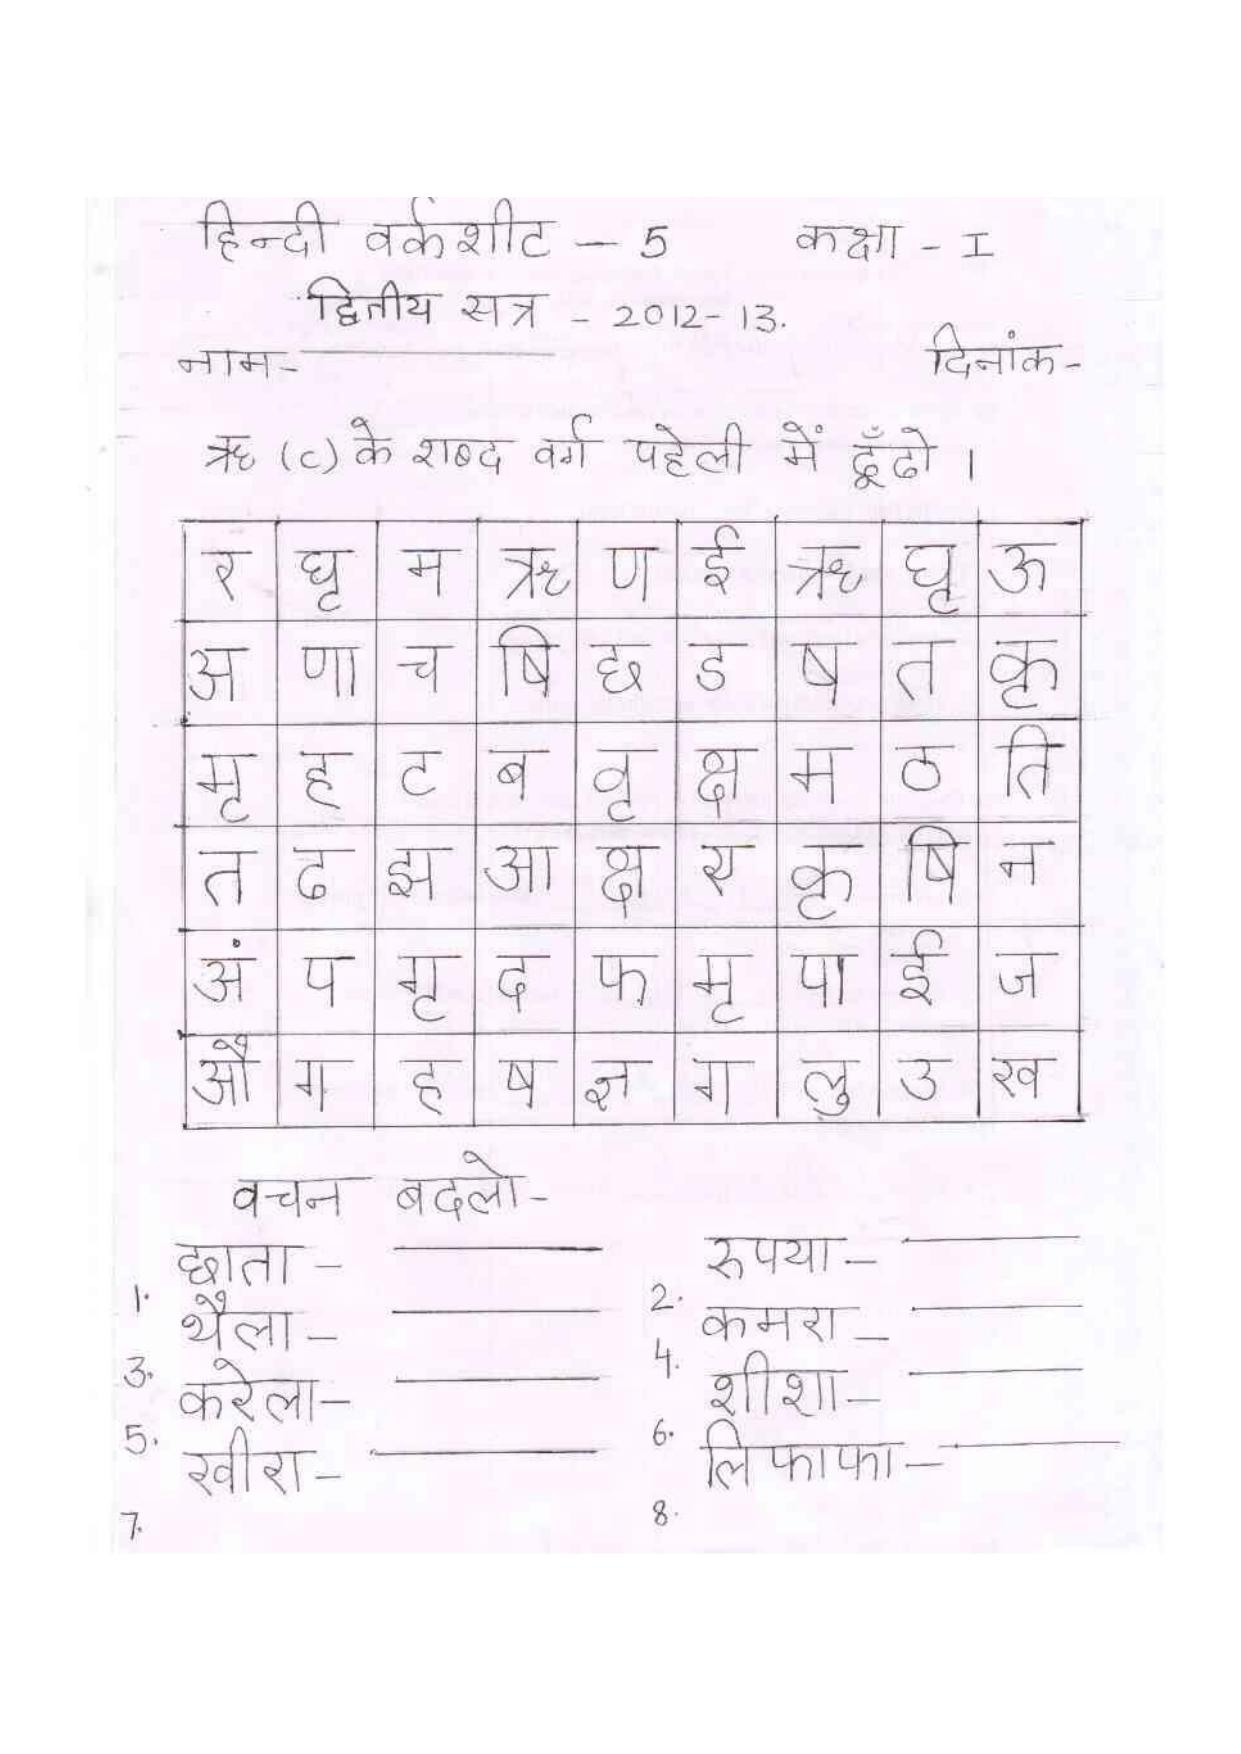 हिन्दी वर्कशीट – 5 कक्षा - I
द्वितीय सत्र - 2012-13.
नाम- दिनांक-
ऋ (c) के शब्द वर्ग पहेली में ढूँढो ।
र घृ म ऋ ण ई ऋ घृ ऊ
अ णा च षि छ ड ष त कृ
मृ ह ट ब वृ क्ष म ठ ति
त ढ झ आ क्ष य कृ षि न
अं प गृ द फ मृ पा ई ज
औ ग ह ष ज्ञ ग लु उ ख
वचन बदलो-
1. छाता – 2. रुपया –
3. थैला – 4. कमरा –
5. करेला – 6. शीशा –
7. खीरा – 8. लिफाफा –